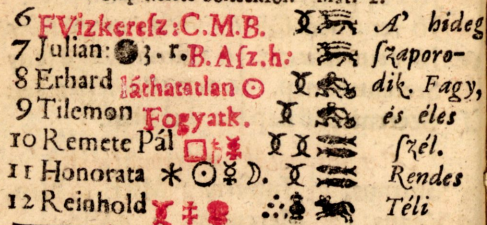 6 F Vizkereſz: C. M. B. A' hideg
7 Julian: 3. r. B. Aſz. h: ſzaporo-
8 Erhard láthatatlan ☉ dik. Fagy,
9 Tilemon Fogyatk. és éles
10 Remete Pál □ ♄ ☿ ſzél.
11 Honorata ⚹ ☉ ☿ ☽. Rendes
12 Reinhold Téli